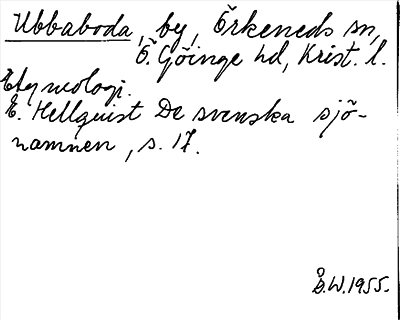 Ubbaboda, by, Örkeneds sn,
Ö. Göinge hd, Krist. l.
Etymologi.
E. Hellquist De svenska sjö-
namnen, s. 17.
Å.W.1955.